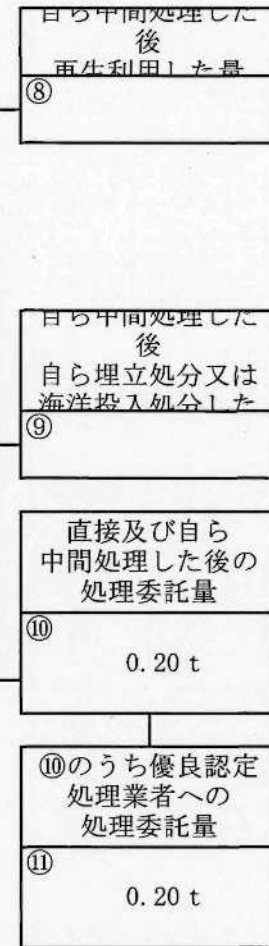 自ら中間処理した
後
再生利用した量
⑧
自ら中間処理した
後
自ら埋立処分又は
海洋投入処分した
⑨
直接及び自ら
中間処理した後の
処理委託量
⑩
0.20 t
⑩のうち優良認定
処理業者への
処理委託量
⑪
0.20 t